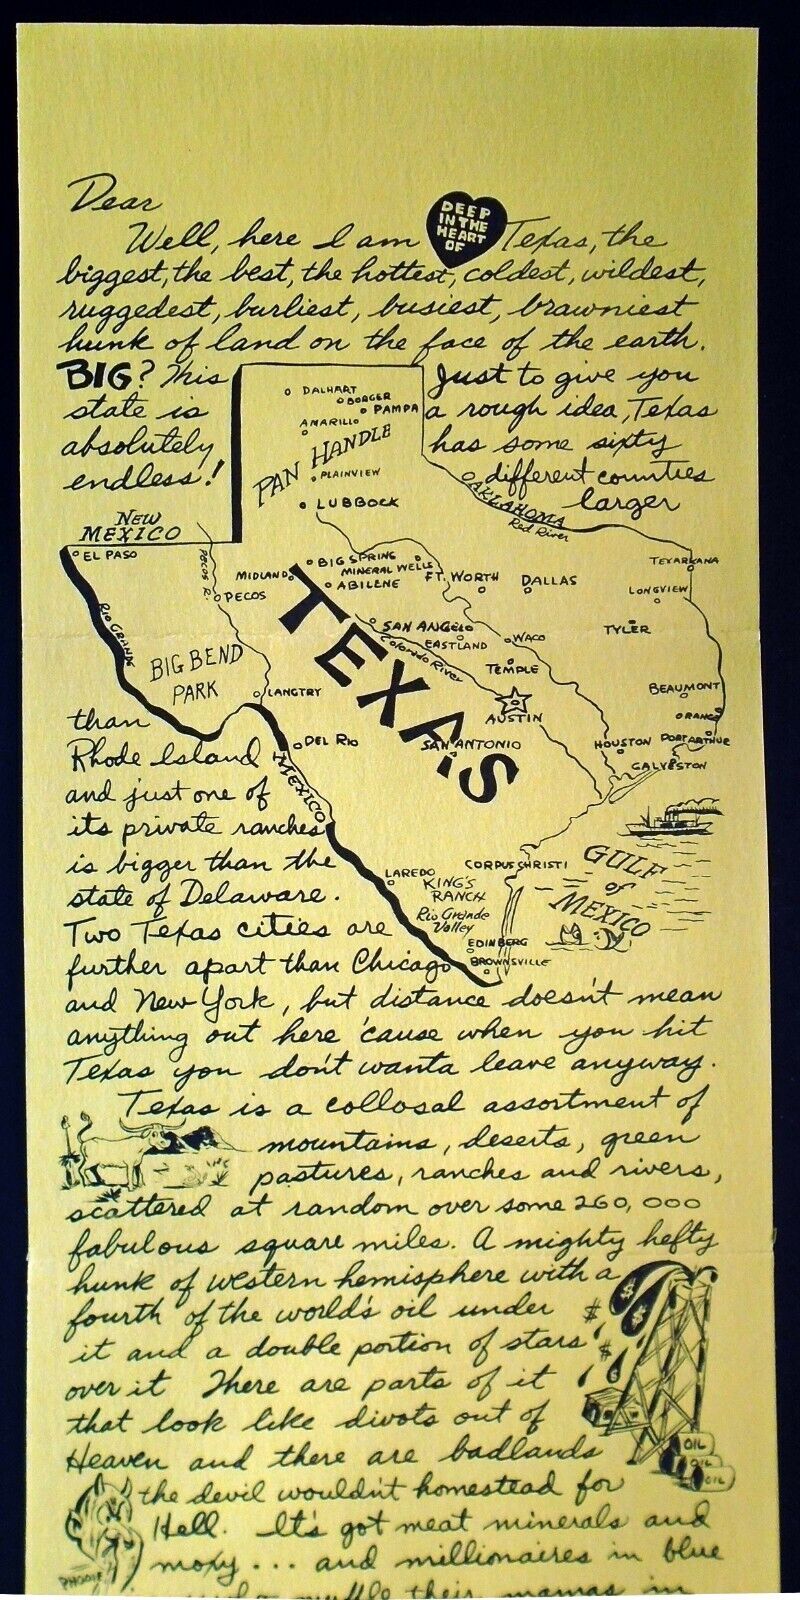 Dear
Well, here I am DEEP IN THE HEART OF Texas, the
biggest, the best, the hottest, coldest, wildest,
ruggedest, burliest, busiest, brawniest
hunk of land on the face of the earth.
BIG? This
state is
absolutely
endless!
Just to give you
a rough idea, Texas
has some sixty
different counties
larger
DALHART
BORGER
PAMPA
AMARILLO
PAN HANDLE
PLAINVIEW
LUBBOCK
OKLAHOMA
Red River
NEW
MEXICO
EL PASO
PECOS R.
PECOS
MIDLAND
BIG SPRING
MINERAL WELLS
ABILENE
FT. WORTH
DALLAS
TEXARKANA
LONGVIEW
TYLER
RIO GRANDE
BIG BEND
PARK
LANGTRY
TEXAS
SAN ANGELO
EASTLAND
Colorado River
WACO
TEMPLE
AUSTIN
BEAUMONT
ORANGE
PORT ARTHUR
HOUSTON
GALVESTON
DEL RIO
SAN ANTONIO
MEXICO
LAREDO
CORPUS CHRISTI
KING'S
RANCH
Rio Grande
Valley
EDINBERG
BROWNSVILLE
GULF
of
MEXICO
than
Rhode Island
and just one of
its private ranches
is bigger than the
state of Delaware.
Two Texas cities are
further apart than Chicago
and New York, but distance doesn't mean
anything out here 'cause when you hit
Texas you don't wanta leave anyway.
Texas is a collosal assortment of
mountains, deserts, green
pastures, ranches and rivers,
scattered at random over some 260,000
fabulous square miles. A mighty hefty
hunk of western hemisphere with a
fourth of the world's oil under
it and a double portion of stars
over it There are parts of it
that look like divots out of
Heaven and there are badlands
the devil wouldn't homestead for
Hell. It's got meat minerals and
moxy... and millionaires in blue
muffle their mamas in
$
$
$
$
OIL
OIL
OIL